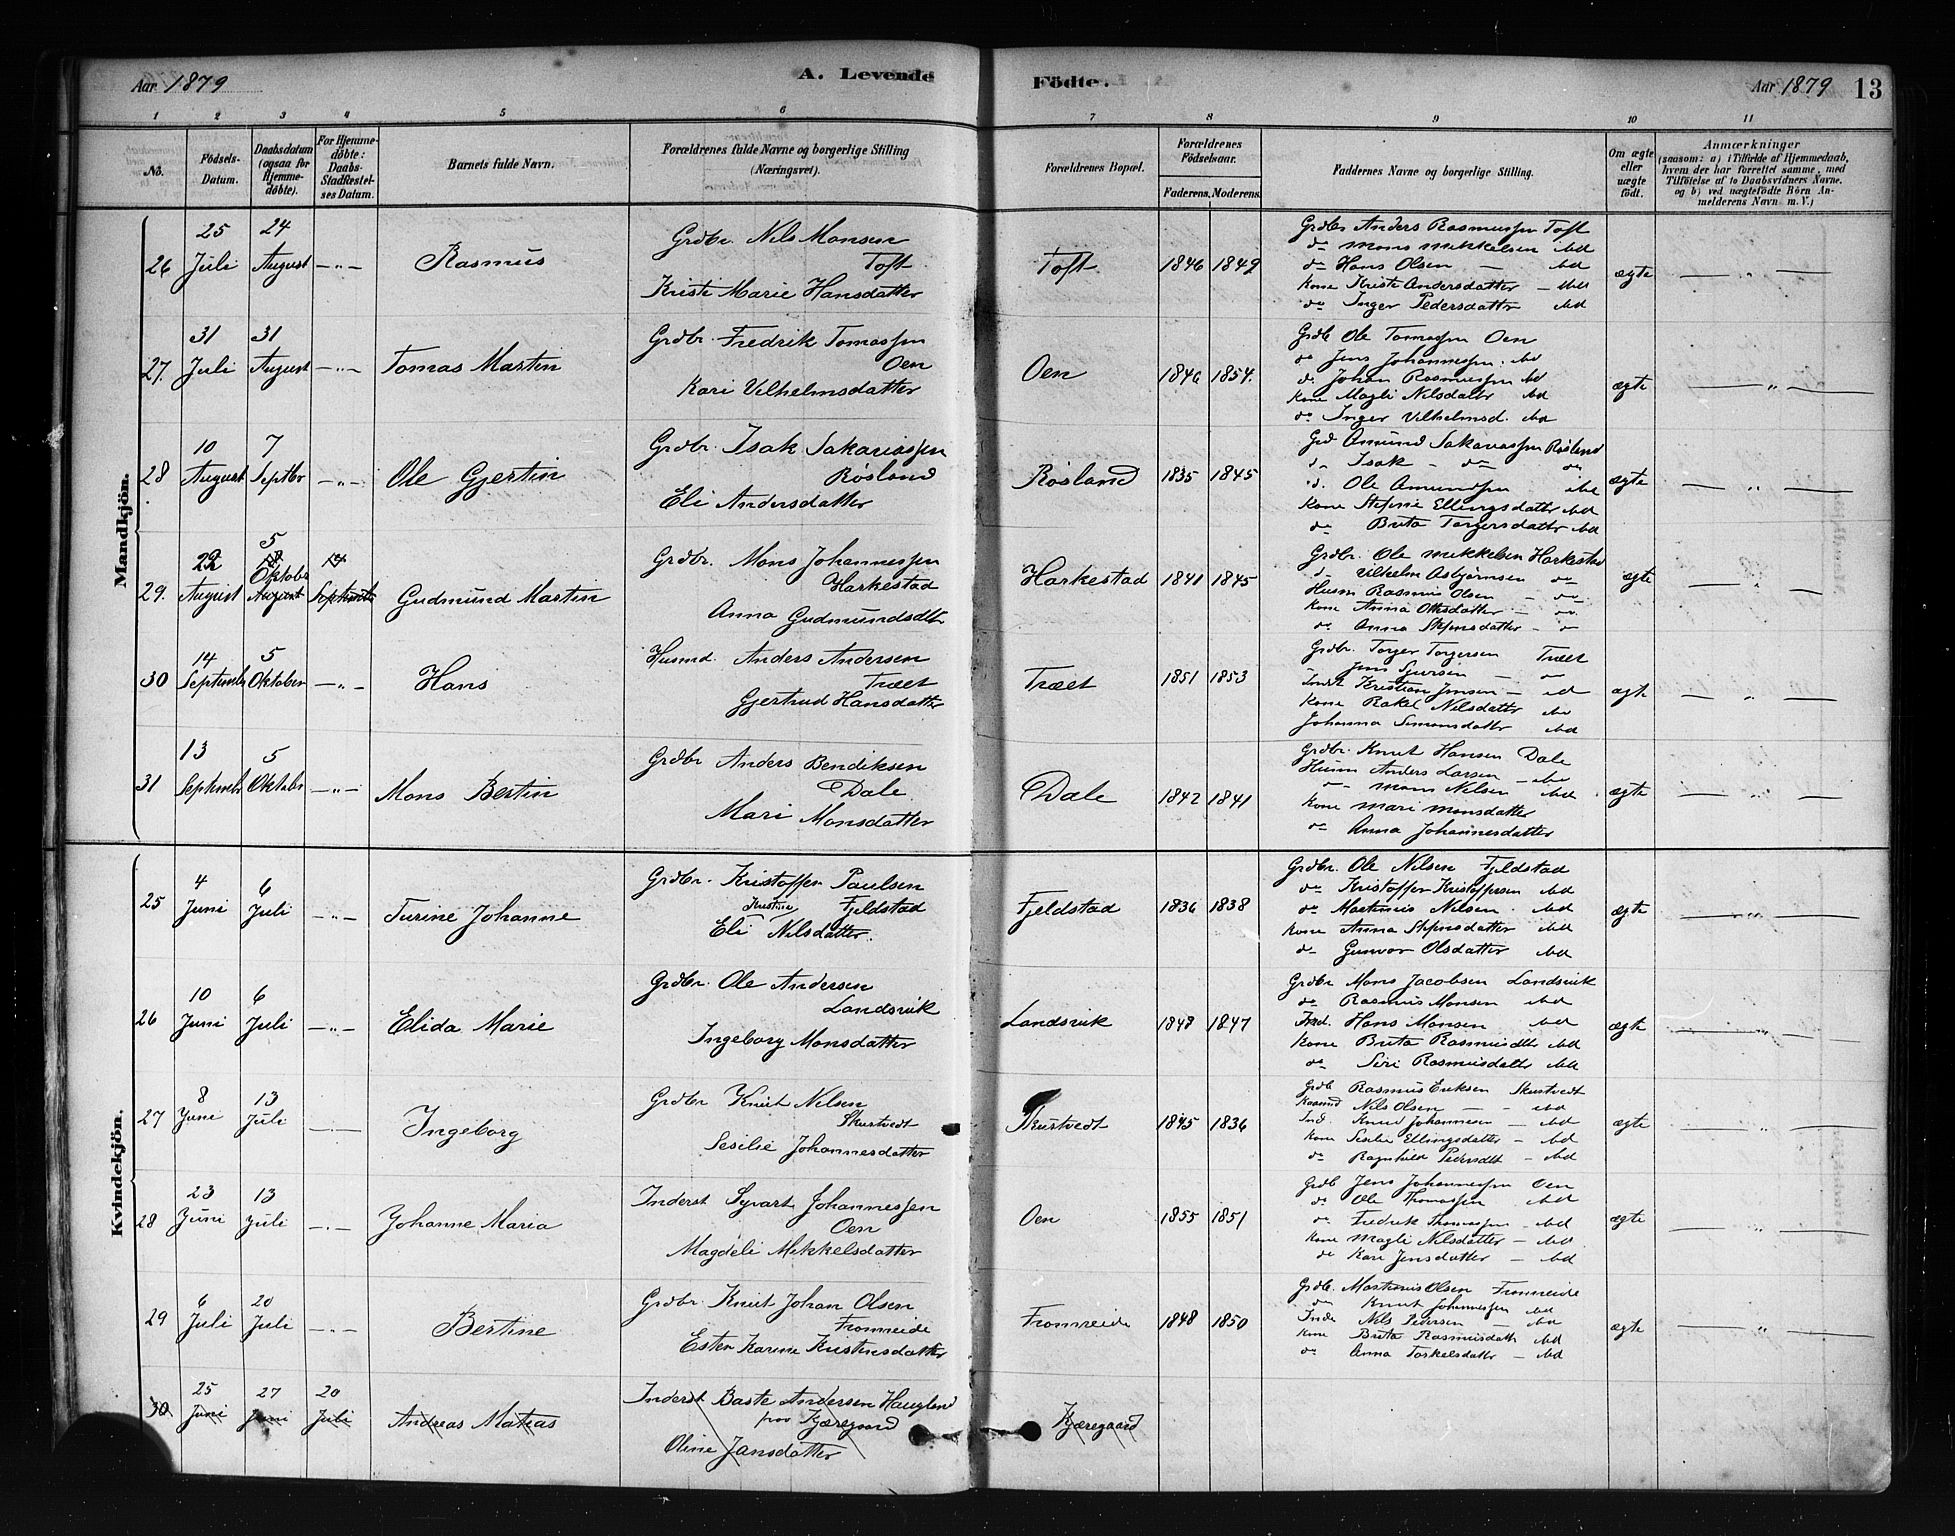 Aar 1879
A. Levende
Födte.
Aar 1879
13
1 2 3 4 5 6 7 8 9 10 11
No.
Födsels-
Datum.
Daabsdatum
(ogsaa for
Hjemme-
döbte).
For Hjemme-
döbte:
Daabs-
Stadfæstel-
ses Datum.
Barnets fulde Navn.
Forældrenes fulde Navne og borgerlige Stilling
(Næringsvei).
Forældrenes Bopæl.
Forældrenes
Födselsaar.
Faderens. Moderens.
Faddernes Navne og borgerlige Stilling.
Om ægte
eller
uægte
födt.
Anmærkninger
(saasom: a) i Tilfælde af Hjemmedaab,
hvem der har forrettet samme, med
Tilföielse af to Daabsvidners Navne.
og b) ved uægtefödte Börn An-
melderens Navn m. V.)
Mandkjön.
26
25
Juli
24
August
Rasmus
Grdbr. Nils Monsen
Toft
Kristi Marie Hansdatter
Toft
1846 1849
Grdbr Anders Rasmussen Toft
do Mons Mikkelsen ibd
do Hans Olsen — ibd
Kone Kristi Andersdatter — ibd
do Inger Pedersdatter ibd
ægte
27.
31
Juli
31
August
Tomas Martin
Grdbr. Fredrik Tomassen
Oen
Kari Vilhelmsdatter
Oen
1846 1854.
Grdb Ole Tomassen Oen
do Jens Johannessen ibd
do Johan Rasmussen ibd
Kone Magli Nilsdatter ibd
do Inger Vilhelmsd. ibd
ægte
28
10
August
7
Septbr
Ole Gjertin
Grdbr. Isak Sakariassen
Røsland
Eli Andersdatter
Røsland
1835 1845
Grd Amund Sakariassen Røsland
do Isak — do — do
d. Ole Amundsen ibd
Kone Stefine Ellingsdatter ibd
do Brita Torgersdatter ibd
ægte
29.
22
August
5
Oktober
August
14
Septembr
Gudmund Martin
Grdbr. Mons Johannessen
Harkestad
Anna Gudmundsdtr
Harkestad
1841 1845
Grdbr. Ole Mikkelsen Harkestad
d. Vilhelm Asbjørnsen do
Husm Rasmus Olsen — do
Kone Anna Ottesdatter — do
do Anna Stefensdatter — do
ægte
30
14
Septembr
5
Oktober
Hans
Husmd. Anders Andersen
Træet
Gjertrud Hansdatter
Træet
1851 1853
Grdbr. Torger Torgersen Træet
Jens Sjursen — do
Inds Kristian Jensen — ibd
Kone Rakel Nilsdatter ibd
Johanna Simonsdatter ibd
ægte
31
13
Septembr
5
Oktober
Mons Bertin
Grdbr Anders Bendiksen
Dale
Mari Monsdatter
Dale
1842 1841
Grdbr. Knut Hansen Dale
Husm Anders Larsen — ibd
do Mons Nilsen ibd
Kone Mari Monsdatter
do Anna Johannesdatter
ægte
Kvindekjön.
25
4
Juni
6
Juli
Turine Johanne
Grdbr. Kristoffer Paulsen
Fjeldstad
Eli Kristine Nilsdatter.
Fjeldstad
1836 1838
Grdbr. Ole Nilsen Fjeldstad
do Kristoffer Kristoffersen ibd
do Martinius Nilsen ibd
Kone Anna Stefensdatter ibd
do Gunvor Olsdatter ibd
ægte
26
10
Juni
6
Juli
Elida Marie
Grdbr. Ole Andersen
Landsvik
Ingeborg Monsdatter
Landsvik
1848 1847
Grdbr Mons Jacobsen Landsvik
do Rasmus Monsen ibd
Ind. Hans Monsen ibd
Kone Brita Rasmusdtr ibd
do Siri Rasmusdatter ibd
ægte
27
8
Juni
13
Juli
Ingeborg
Grdbr Knut Nilsen
Skurtvedt
Sesilie Johannesdatter
Skurtvedt
1845 1836
Grdb Rasmus Eriksen Skurtvedt
Nils Olsen — ibd
Ind. Knud Johannesen — ibd
Kone Sesilie Ellingsdatter — ibd
do Ragnhild Pedersdtr — ibd
ægte
28
23
Juni
13
Juli
Johanne Maria
Inderst Syvart Johannessen
Oen
Magdeli Mikkelsdatter
Oen
1855 1851
Grdb Jens Johannessen Oen
do Ole Thomassen ibd
do Fredrik Thomassen ibd
Kone Magli Nilsdatter — ibd
do Kari Jensdatter — ibd
ægte
29
6
Juli
20
Juli
Bertine
Grdbr. Knut Johan Olsen
Fromreide
Ester Karine Kristensdatter
Fromreide
1848 1850
Grdb. Martinius Olsen Fromreide
do Knut Johannessen ibd
Inds Nils Pedersen — ibd
Kone Brita Rasmusdatter ibd
do Anna Torkelsdatter — ibd
ægte
30
25
Juni
27
Juni
20
Juli
Andreas Matias
Inderst Baste Andersen Haugland
paa Kjæregaard
Oline Jansdatter
Kjæregaard